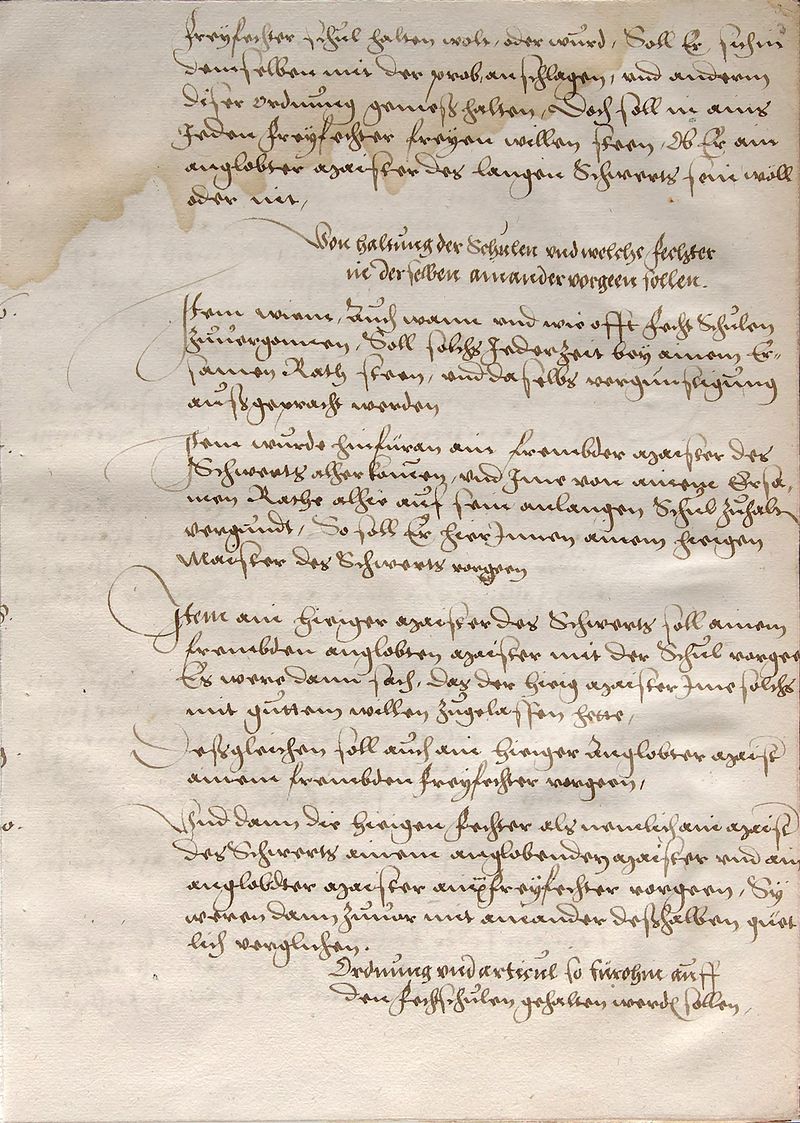 Freyfechter schul halten wolt, oder wurd, Soll Er, sich in
demselben mit der prob, anschlagen, vnd anderm
diser ordnung gemeß halten, Doch soll in ains
Jeden freyfechter freyen willen steen, Ob Er ain
anglobter maister des langen Schwerts sein wöll
oder nit,
Von haltung der Schulen vnd welche fechter
in derselben ainander vorgeen sollen.
Item wiem, Auch wann vnd wie offt fecht Schulen
Zuuergonnen, Soll solchs Jeder Zeit bey ainem Er-
samen Rath steen, vnd daselbs vergünstigung
außgepracht werden
Item wurde hinfüran ain frembder maister des
Schwerts alher komen, vnd Jme von ainem Ersa,
men Rathe alhie auf sein anlangen Schul Zuhaltn
vergundt, So soll Er hier Jnnen ainem hiegen
Maister des Schwerts vorgeen
Item ain hieiger maister des Schwerts soll ainem
frembden anglobten maister mit der Schul vorgee
Es were dann sach, das der hieig maister Jme solchs
mit guttem willen Zugelassen hette,
Deßgleichen soll auch ain hieiger Anglobter maist
ainem frembden freyfechter vorgeen,
Vnd dann die hieigen fechter als nemlich ain maist
des Schwerts ainem anglobenden maister vnd ain
anglobdter maister aim freyfechter vorgeen, Sy
weren dann Zuuor mit ainander deßhalben guet
lich verglichen.
Ordnung vnd articul so fürohin auff
den fechschulen gehalten werdn sollen,